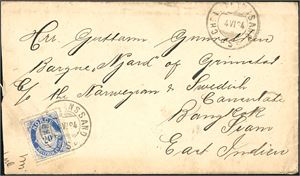 Herr Guttorm Gundersen
Barque "Njard" of Grimstad
C/o the Norwegian & Swedish
Consulate
Bangkok
Siam
East Indien
4 VI
NORGE
20